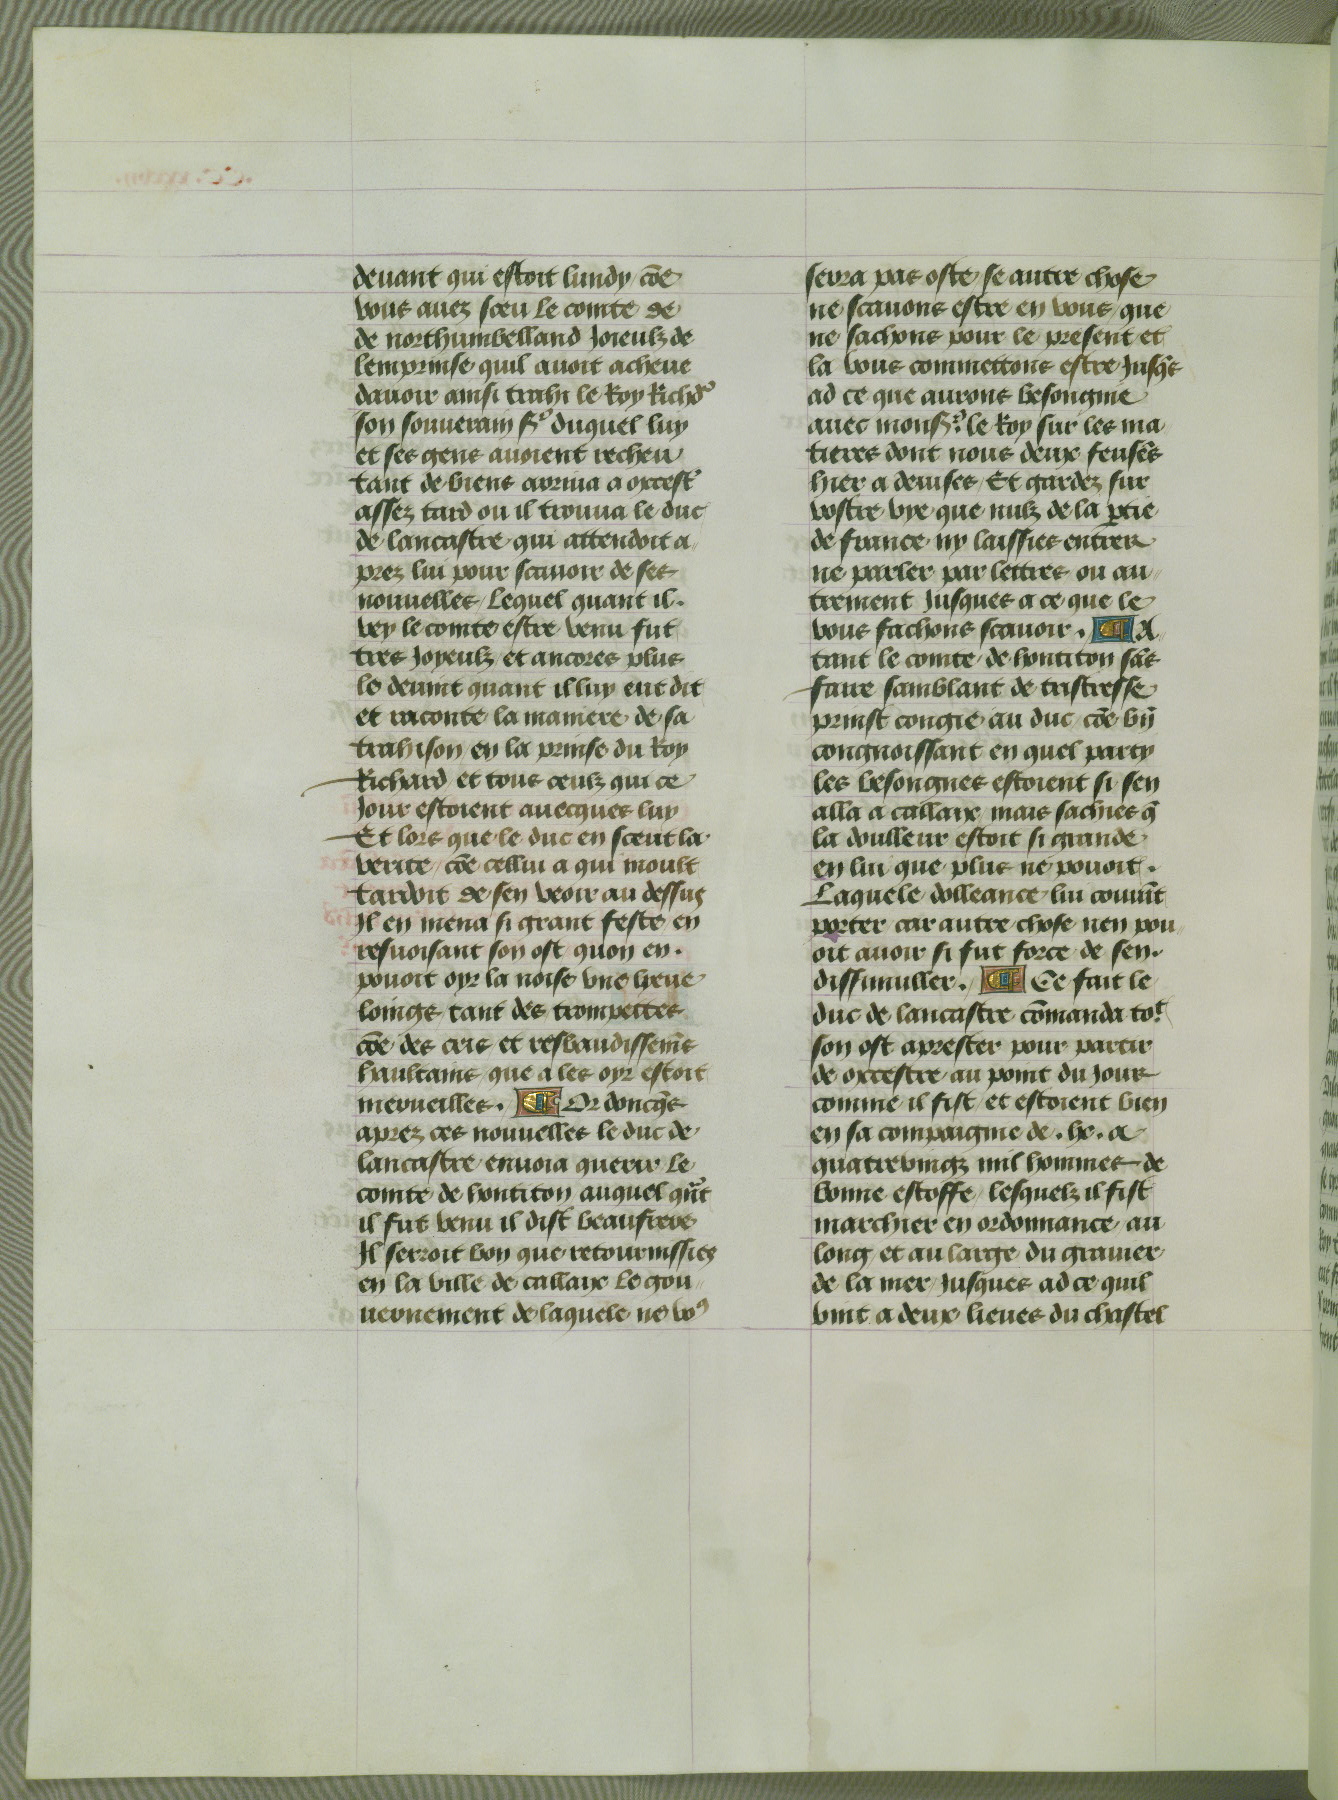 deuant qui estoit lundy cõe
vous auez sceu le comte de
de northumbelland Joieulz de
lemprinse quil auoit acheue
dauoir ainsi trahi le Roy Richd'
son souuerain sr duquel luy
et ses gens auoient recheu
tant de biens arriua a oxcest'
assez tard ou il trouua le duc
de lancastre qui attendoit a
prez lui pour scauoir de ses
nouuelles / Lequel quant il.
vey le comte estre venu fut
tres Joyeulz et ancores plus
le deuint quant il luy eut dit
et raconte la maniere de sa
trahison en la prinse du Roy
Richard et tous ceulz qui ce
Jour estoient auecques luy
Et lors que le duc en sceut la
verite / cõe cellui a qui moult
tardoit de sen veoir au dessus
Il en mena si grant feste en
resuoisant son ost quon en.
pouoit oyr la noise vne lieue
loings tant des trompettes
cõe des cris et resbaudissemẽs
haultains que a les oyr estoit
merueilles. ¶ Or doncq̃s
aprez ces nouuelles le duc de
lancastre enuoia querir le
comte de hontiton auquel qñt
il fut venu il dist beaufrere
Il serroit bon que retournissiez
en la ville de callaix le gou
uernement de laquele ne vo9
serra pas oste / se autre chose
ne scauons estre en vous que
ne sachons pour le present et
la vous commettons estre Jusq̃s
ad ce que aurons besongnie
auec monsr. le Roy sur les ma
tieres dont nous deux feusẽs
hier a deuises / Et gardez sur
vostre vye que nulz de la ptie
de france ny laissies entrer
ne parler par lettres ou au
trement Jusques a ce que le
vous fachons scauoir. ¶ A
tant le comte de hontiton sãs
faire samblant de tristresse
prinst congie au duc cõe bñ
congnoissant en quel party
les besongnes estoient si sen
alla a callaix mais sachies q̃
la doulleur estoit si grande
en lui que plus ne pouoit.
Laquele dolleance lui couuĩt
porter car autre chose nen pou
oit auoir si fut force de sen.
dissimuller. ¶ Ce fait le
duc de lancastre cõmanda tot
son ost aprester pour partir
de oxcestre au point du Jour
comme il fist et estoient bien
en sa compaignie de .lx. a
quatrevingz mil hommes de
bonne estoffe / lesquelz il fist
marchier en ordonnance au
long et au large du grauier
de la mer Jusques ad ce quil
vint a deux lieues du chastel